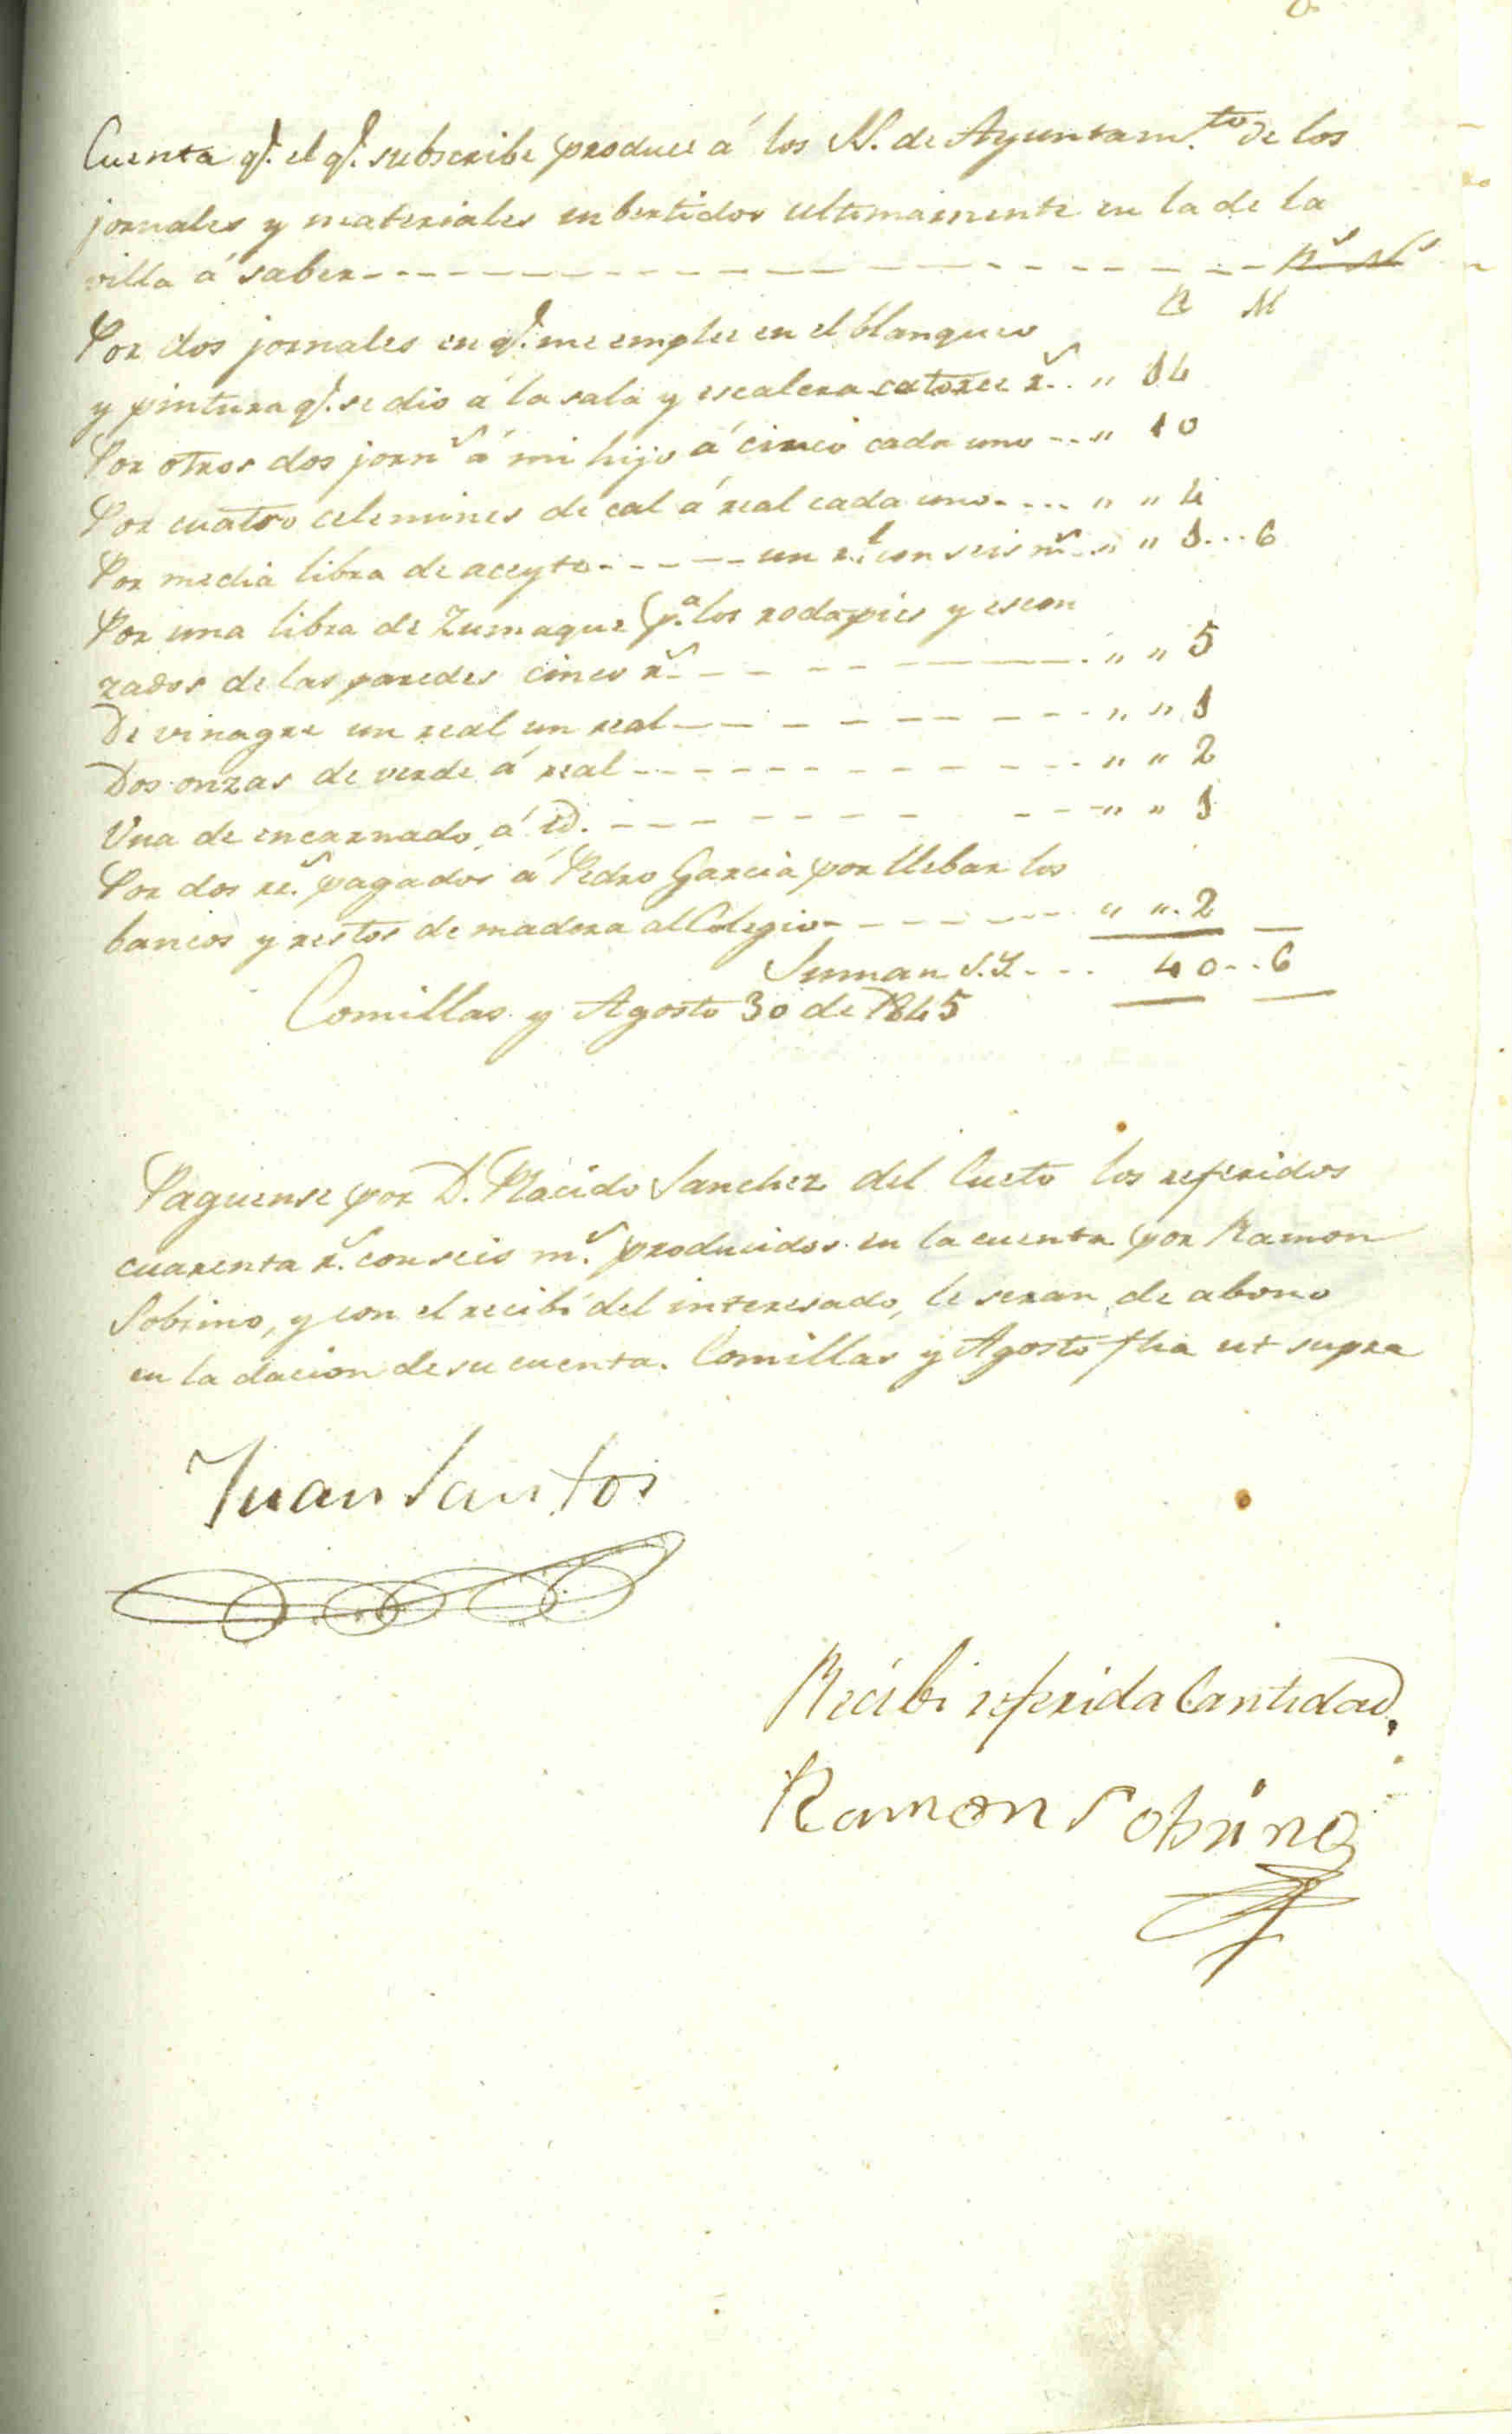 Cuenta q.e el q.e subscribe produce á los SS. de Ayuntam.to de los
jornales y materiales inbertidos ultimamente en la de la
villa á saber - - - - - - - - - - - - - - - - R.s M.s
R M
Por dos jornales en q.e me emplee en el blanqueo
y pintura q.e se dio á la sala y escalera catorce r.s . " 14
Por otros dos jorn.s á mi hijo á cinco cada uno - - " 10
Por cuatro celemines de cal á real cada uno - - - - " " 4
Por media libra de aceyte - - - - - un r.l con seis m.s - " " 1 - - 6
Por una libra de Zumaque p.a los rodapies y escon
zados de las paredes cinco r.s - - - - - - - " " 5
De vinagre un real un real - - - - - - - - - " " 1
Dos onzas de verde á real - - - - - - - - - - " " 2
Una de encarnado á id. - - - - - - - - - - - " " 1
Por dos r.s pagados á Pedro Garcia por llebar los
bancos y restos de madera al Colegio - - - - - - - " " 2
Suman S.Y. - - - 40 - - 6
Comillas y Agosto 30 de 1845
Paguense por D. Placido Sanchez del Cueto los referidos
cuarenta r.s con seis m.s producidos en la cuenta por Ramon
Sobrino, y con el recibí del interesado, le seran de abono
en la dacion de su cuenta. Comillas y Agosto fha ut supra
Juan Santos
Recibi referida Cantidad,
Ramon Sobrino